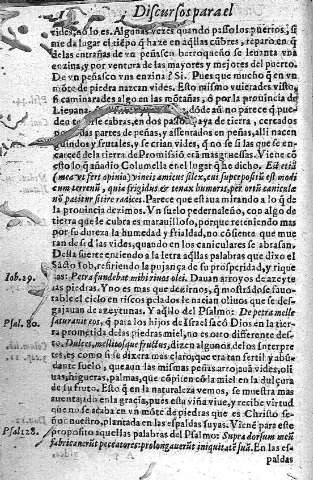 Discursos para el
vides, no lo es. Algunas vezes quando passo los puertos, si
me da lugar el tiẽpo q̃ haze en aq̃llas cũbres, reparo en q̃
de las entrañas de vn peñasco berroqueño se leuanta vna
enzina, y por ventura de las mayores y mejores del puerto.
De vn peñasco vna enzina? Si. Pues que mucho q̃ en vn
mõte de piedra nazcan vides. Esto mismo vuierades visto,
si caminarades algo en las mõtañas, o por la prouincia de
Lieuana, dõde aũ no parece q̃ pue
dẽ cabras, en dos passos aya de tierra, cercados
das partes de peñas, y assentados en peñas, alli nacen
guindos y frutales, y se crian vides, q̃ no se si las que se en-
carcẽ de la tierra de Promissiõ erã mas gruessas. Viene cõ
esto lo q̃ añadio Columella en el lugar q̃ he dicho. Est etiã
(mea vt fert opinio) vineis amicus silex, cui superpositũ est modi
cum terrenũ, quia frigidus & tenax humoris, per ortũ canicule
nõ patitur sitire radices. Parece que estaua mirando a lo q̃ de
la prouincia dezimos. Vn susto pedernaleño, con algo de
tierra que le cubra es marauilloso, porque reteniendo mas
por su dureza la humedad y frialdad, no cõsiente que mue
ran de sed las vides, quando en los caniculares se abrasan.
Desta suerte entiendo a la letra aq̃llas palabras que dixo el
Sãcto Iob, refiriendo la pujança de su prosperidad, y rique
Iob. 29.
zas: Petra fundebat mihi riuos olei. Dauan arroyos de azeyte
las piedras. Y no es mas que dezirnos, q̃ mostrãdose fauo-
rable el cielo en riscos pelados le nacian oliuos que se des-
gajauan de azeytunas. Y aq̃llo del Psalmo: De petra melle
Psal. 80.
saturauit eos, q̃ para los hijos de Israel sacó Dios en la tier-
ra prometida de las piedras miel, no es otro diferente de es-
to. Dulces, mellitosque fructus, dizen algunos de los interpre
tes, es como si se dixera mas claro, que era tan fertil y abũ-
dante suelo, que aun las mismas peñas arrojauã vides, oli
uas, higueras, palmas, que cõpiten cõ la miel en la dulçura
de su fruto. Esto q̃ en la naturaleza vemos, se muestra mas
auentajado en la gracia, pues esta viña viue, y recibe virtud
que no se acaba en vn mõte de piedras que es Christo se-
ñor nuestro, plantada en las espaldas suyas. Viene para este
Psal. 128.
proposito aquellas palabras del Psalmo: Supra dorsum meũ
fabricauerũt peccatores: prolongauerũt iniquitatẽ suã. En las es
paldas